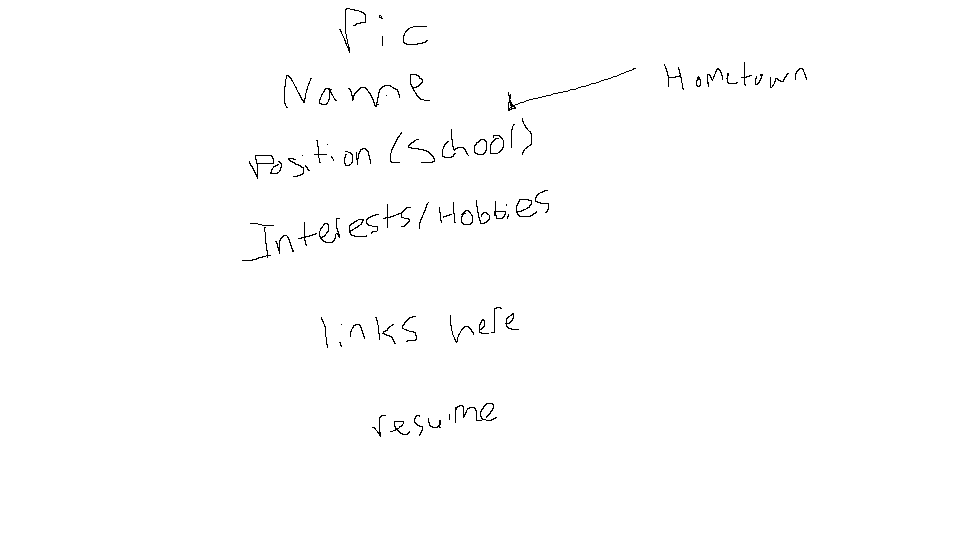 Pic
Name
Hometown
Position (School)
Interests/Hobbies
links here
resume